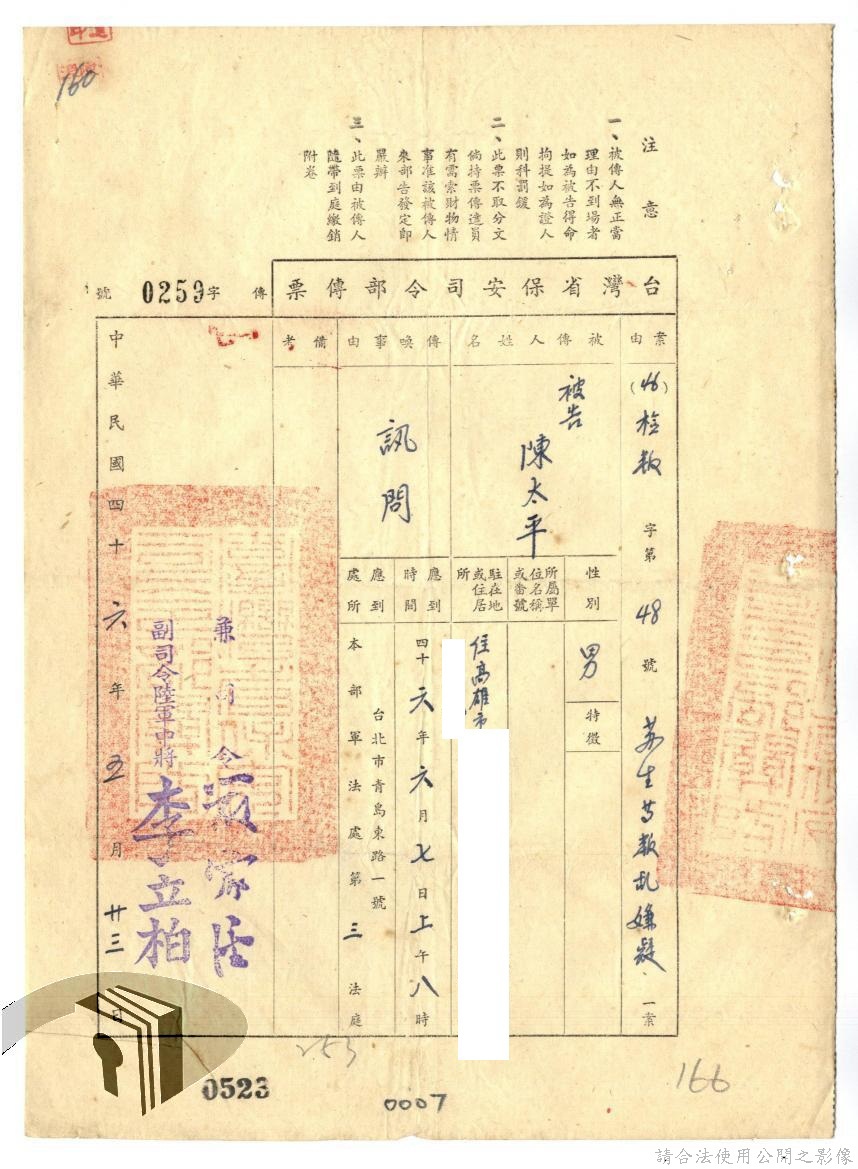 160
注意
一、被傳人無正當
理由不到場者
如為被告得命
拘提如為證人
則科罰鍰
二、此票不取分文
倘持票傳達員
有需索財物情
事准該被傳人
來部告發定即
嚴辦
三、此票由被傳人
隨帶到庭繳銷
附卷
台灣省保安司令部傳票
傳字0259號
案由
(46)檢叛字第48號
蘇生等叛乱嫌疑一案
被傳人姓名
被告
陳太平
性別
男
特徵
所屬單
位名稱
或番號
駐在地
或住居
所
住高雄市
傳喚事由
訊問
應到時間
四十六年六月七日上午八時
應到處所
台北市青島東路一號
本部軍法處第三法庭
備考
兼司令
副司令陸軍中將李立柏
中華民國四十六年五月廿三日
253
0523
0007
166
請合法使用公開之影像